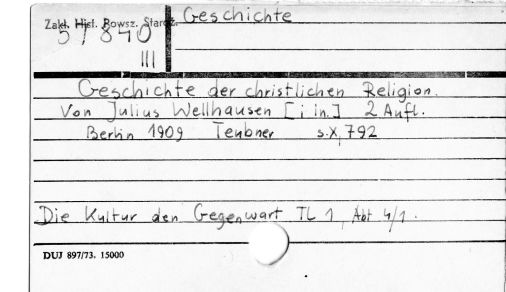 Zakł. Hist. Powsz. Staroż.
Geschichte
57840
III
Geschichte der christlichen Religion.
Von Julius Wellhausen [i in.] 2 Aufl.
Berlin 1909 Teubner s.X, 792
Die Kultur den Gegenwart TL 1, Abt 4/1.
DUJ 897/73. 15000